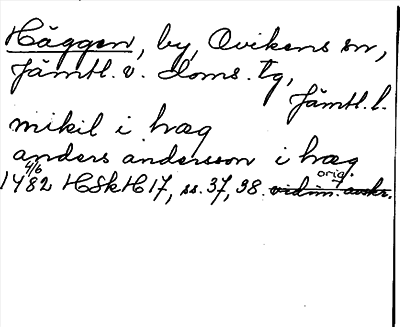 Häggen, by, Ovikens sn,
Jämtl. v. Doms. tg,
Jämtl. l.
mikil i hæg
anders andersson i hæg
4/6 orig.
1482 HSkH 17, ss. 37, 98. vidim. avskr.